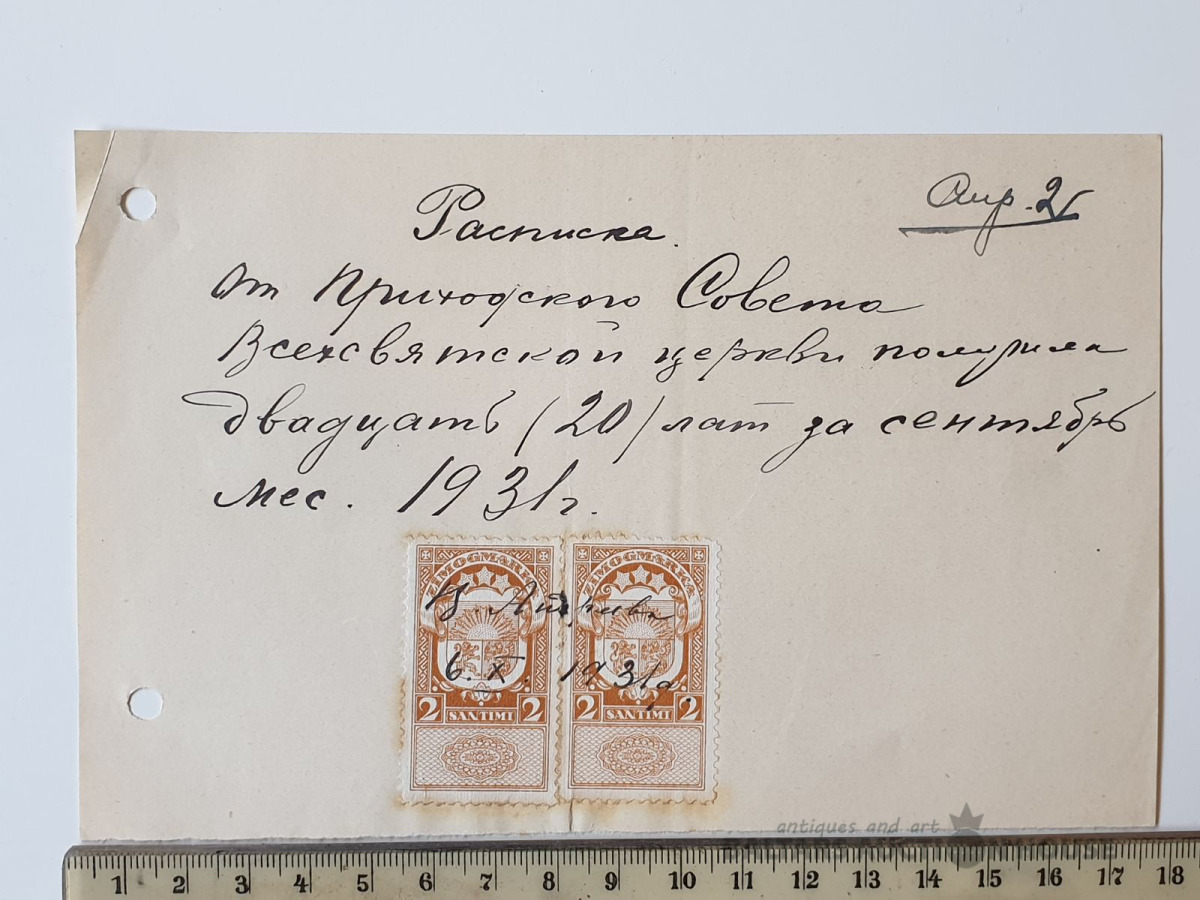 Расписка.
От Приходского Совета
Всехсвятской церкви получила
двадцать (20) лат за сентябрь
мес. 1931 г.
ZIMOGMARKA ZIMOGMARKA
6. X. 1931 g.
2 SANTIMI 2 2 SANTIMI 2
antiques and art
1 2 3 4 5 6 7 8 9 10 11 12 13 14 15 16 17 18